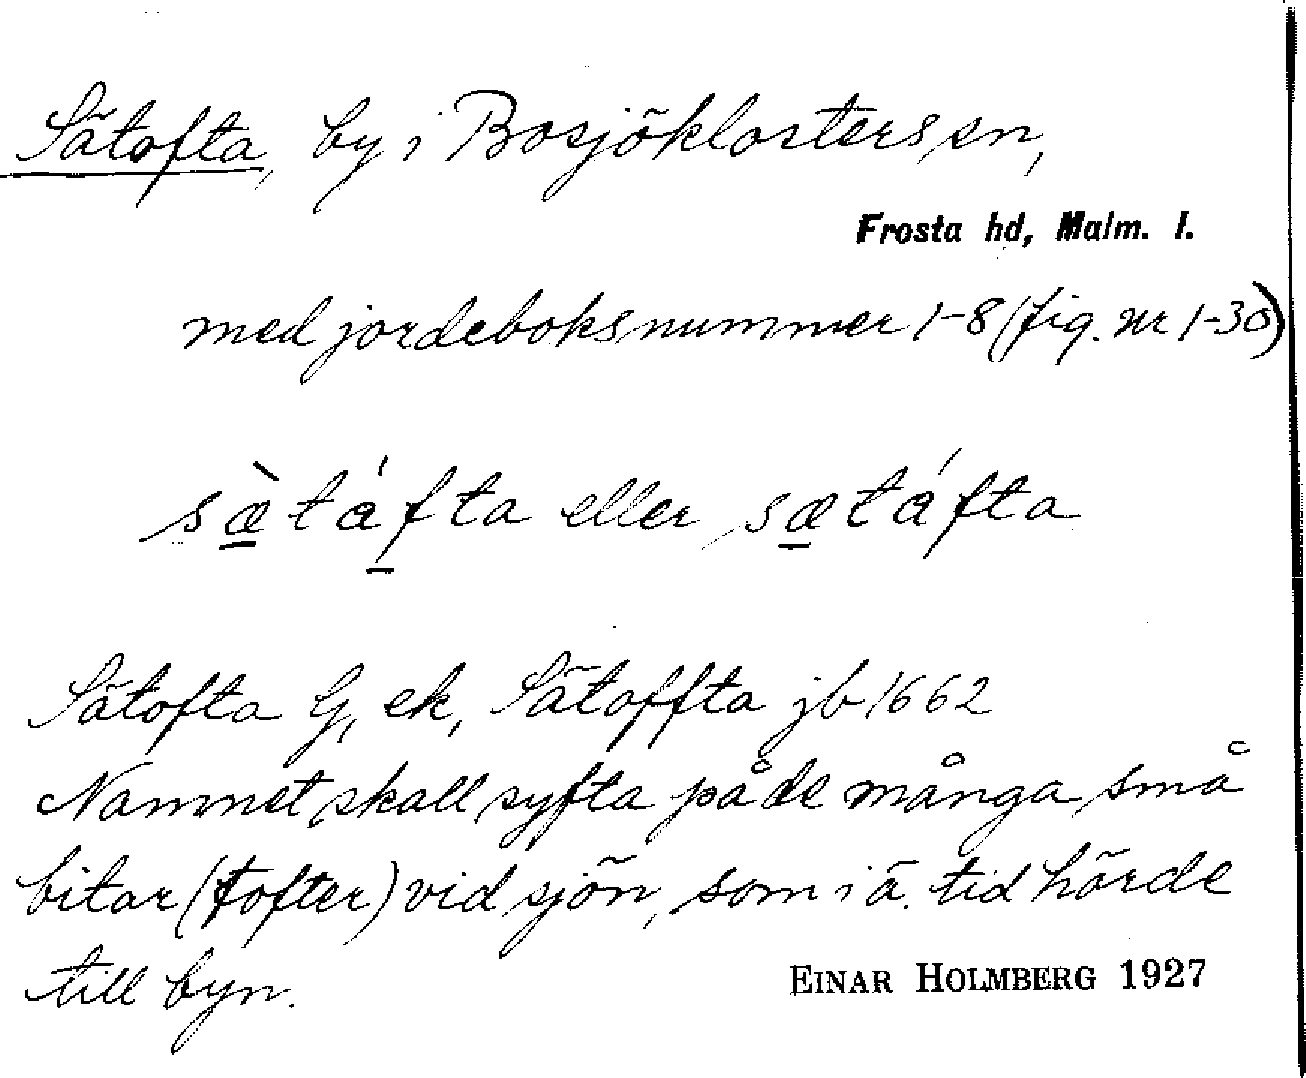 Sätofta, by i Bosjöklosters sn,
Frosta hd, Malm. l.
med jordeboksnummer 1-8 (fig. nr 1-30)
sæ̀táfta eller sætáfta
Sätofta G, ek, Sätoffta jb 1662
Namnet skall syfta på de många små
bitar (tofter) vid sjön, som i ä. tid hörde
till byn.
EINAR HOLMBERG 1927